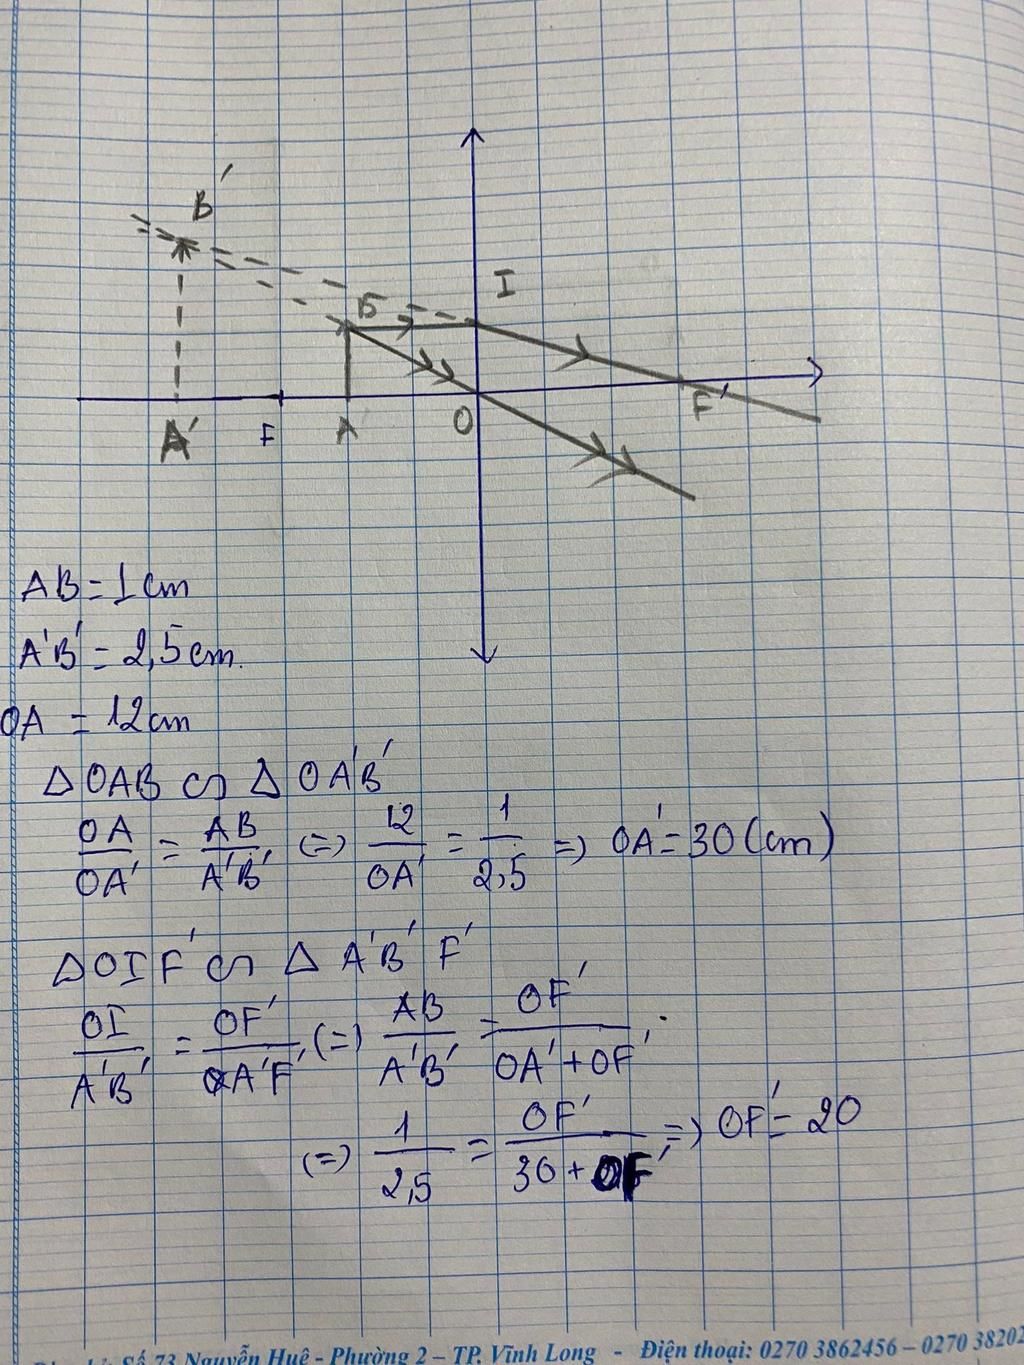 B'
B
I
A'
F
A
O
F'
AB = 1 cm
A'B' = 2,5 cm.
OA = 12 cm
Δ OAB ∽ Δ OA'B'
OA/OA' = AB/A'B' (=) 12/OA' = 1/2,5 =) OA' = 30 (cm)
Δ OIF' ∽ Δ A'B'F'
OI/A'B' = OF'/A'F' (=) AB/A'B' = OF'/OA' + OF'.
(=) 1/2,5 = OF'/30 + OF' =) OF' = 20
Số 73 Nguyễn Huệ - Phường 2 – TP. Vĩnh Long - Điện thoại: 0270 3862456 – 0270 38202